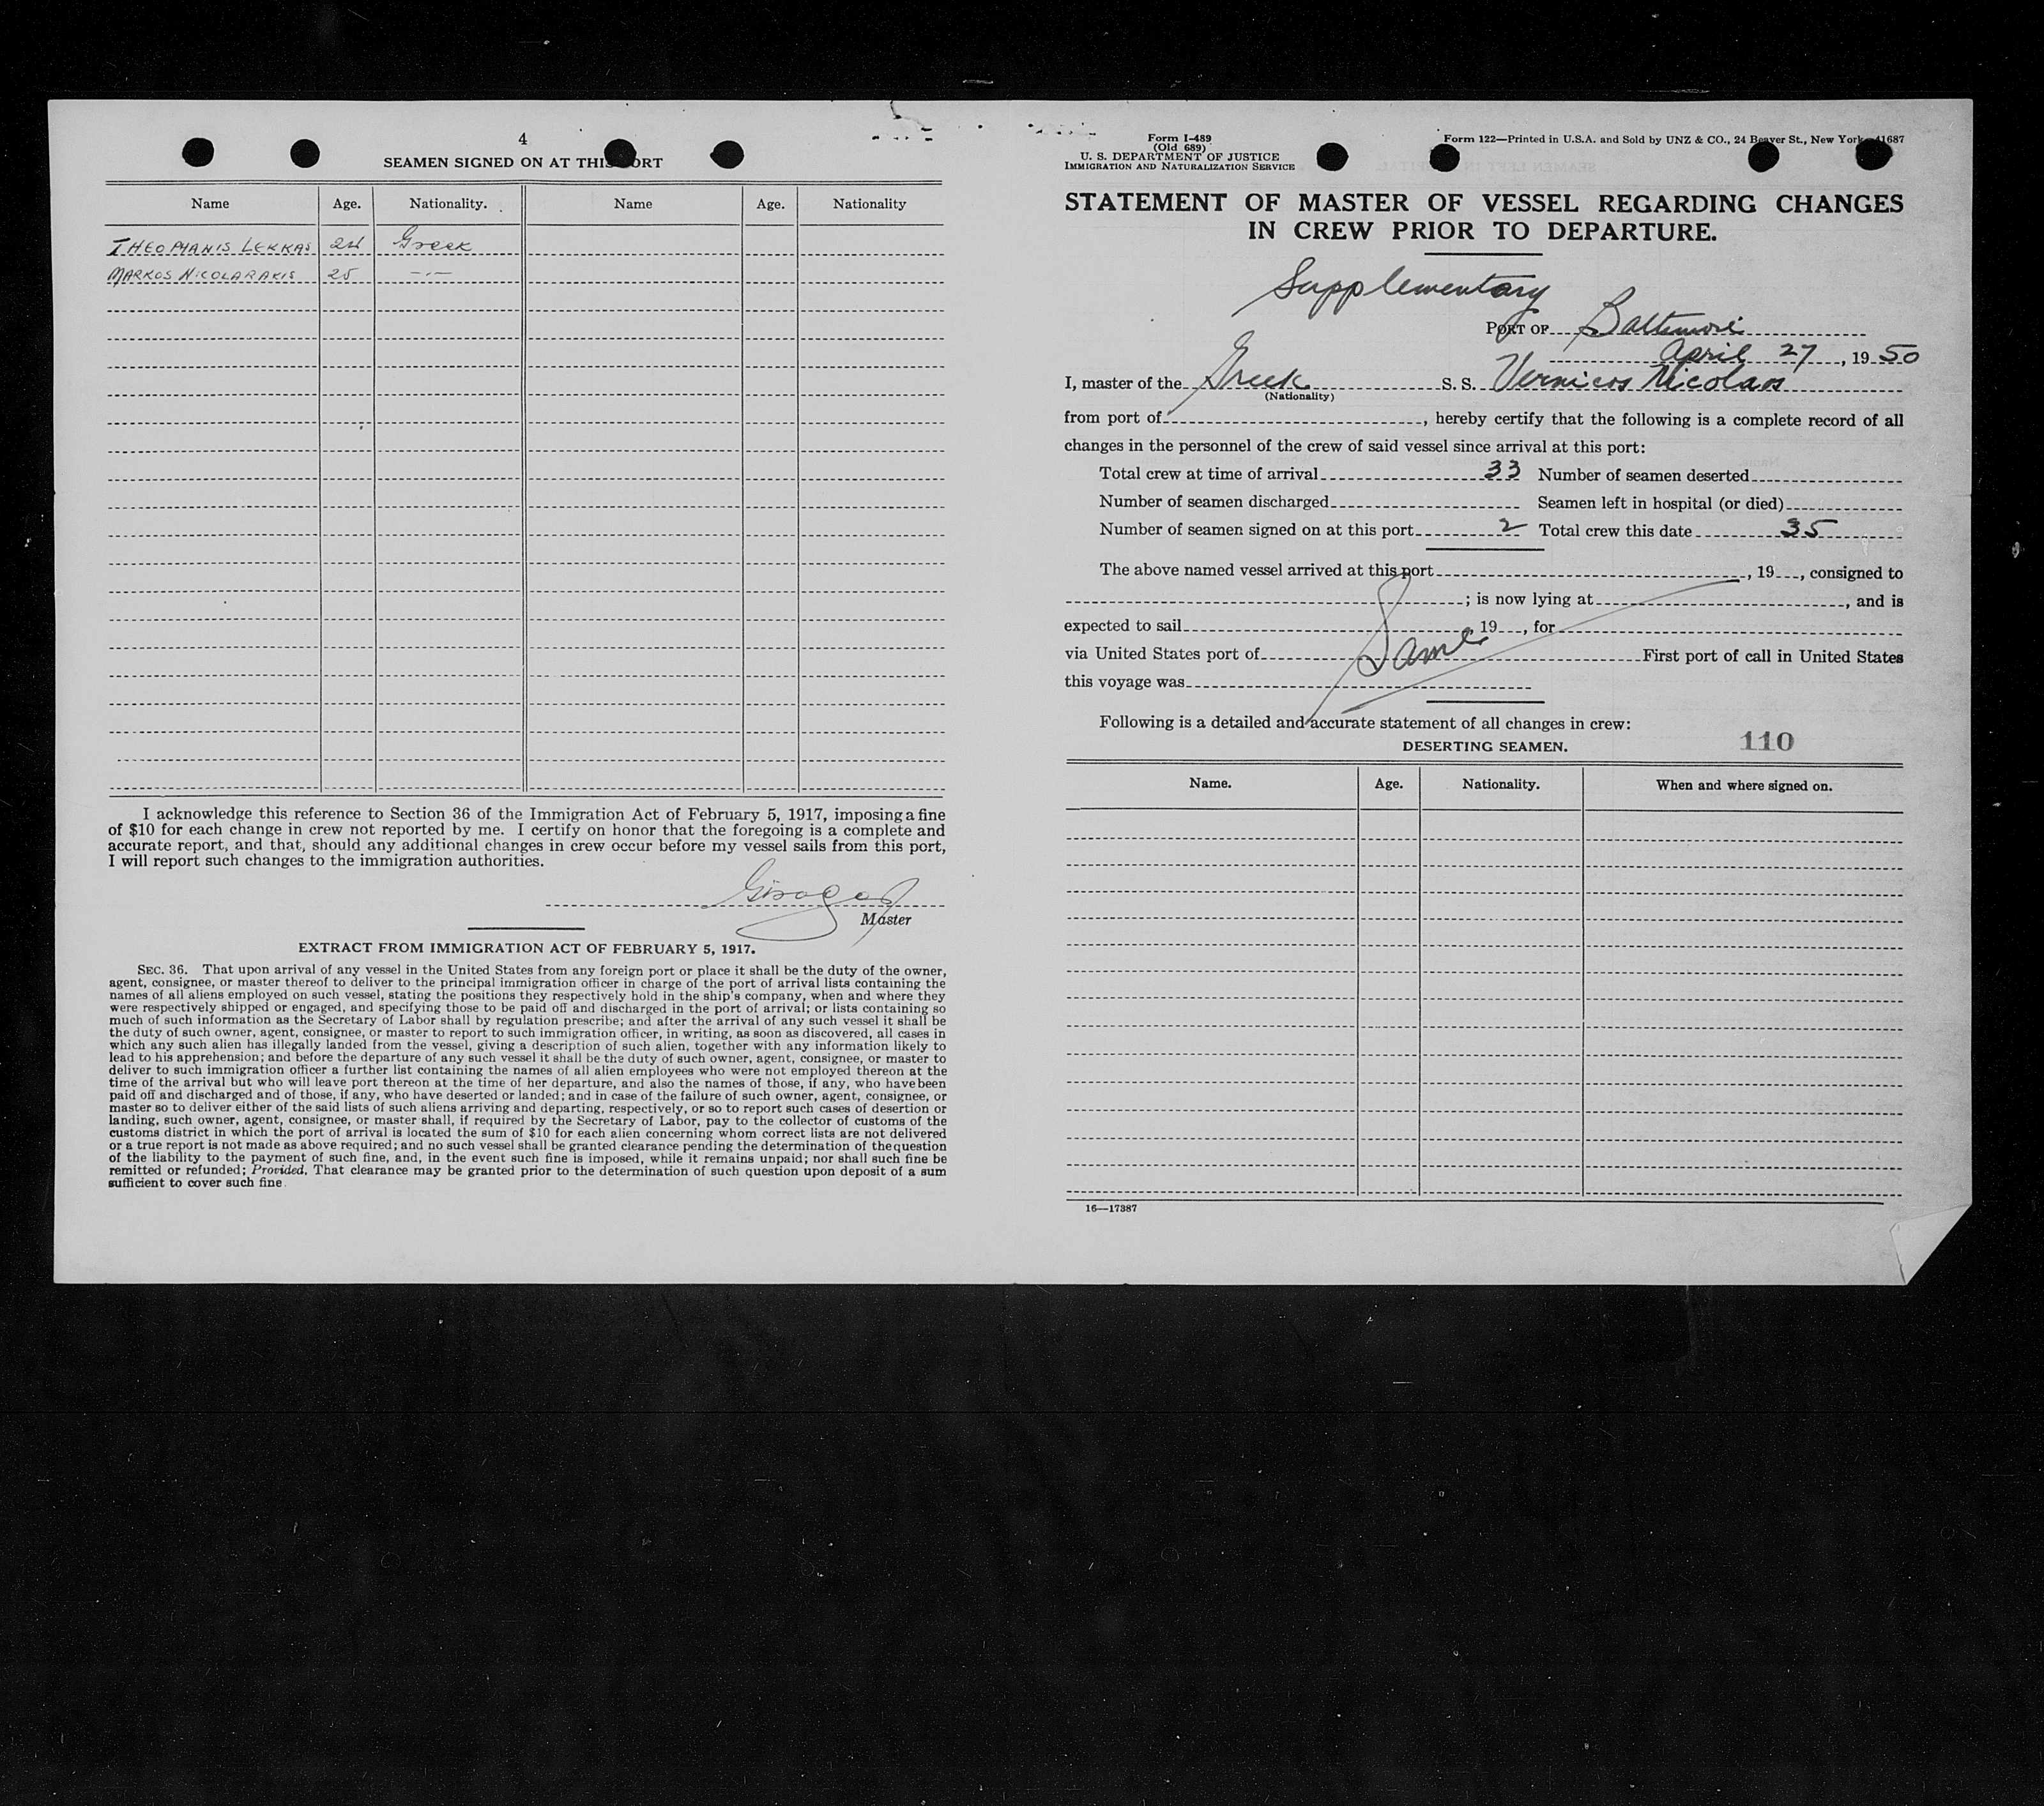 4
SEAMEN SIGNED ON AT THIS PORT
Name Age. Nationality. Name Age. Nationality
THEOPHANIS LEKKAS 24 Greek
MARKOS NICOLARAKIS 25 -·-
I acknowledge this reference to Section 36 of the Immigration Act of February 5, 1917, imposing a fine
of $10 for each change in crew not reported by me. I certify on honor that the foregoing is a complete and
accurate report, and that, should any additional changes in crew occur before my vessel sails from this port,
I will report such changes to the immigration authorities.
Master
EXTRACT FROM IMMIGRATION ACT OF FEBRUARY 5, 1917.
SEC. 36. That upon arrival of any vessel in the United States from any foreign port or place it shall be the duty of the owner,
agent, consignee, or master thereof to deliver to the principal immigration officer in charge of the port of arrival lists containing the
names of all aliens employed on such vessel, stating the positions they respectively hold in the ship's company, when and where they
were respectively shipped or engaged, and specifying those to be paid off and discharged in the port of arrival; or lists containing so
much of such information as the Secretary of Labor shall by regulation prescribe; and after the arrival of any such vessel it shall be
the duty of such owner, agent, consignee, or master to report to such immigration officer, in writing, as soon as discovered, all cases in
which any such alien has illegally landed from the vessel, giving a description of such alien, together with any information likely to
lead to his apprehension; and before the departure of any such vessel it shall be the duty of such owner, agent, consignee, or master to
deliver to such immigration officer a further list containing the names of all alien employees who were not employed thereon at the
time of the arrival but who will leave port thereon at the time of her departure, and also the names of those, if any, who have been
paid off and discharged and of those, if any, who have deserted or landed; and in case of the failure of such owner, agent, consignee, or
master so to deliver either of the said lists of such aliens arriving and departing, respectively, or so to report such cases of desertion or
landing, such owner, agent, consignee, or master shall, if required by the Secretary of Labor, pay to the collector of customs of the
customs district in which the port of arrival is located the sum of $10 for each alien concerning whom correct lists are not delivered
or a true report is not made as above required; and no such vessel shall be granted clearance pending the determination of the question
of the liability to the payment of such fine, and, in the event such fine is imposed, while it remains unpaid; nor shall such fine be
remitted or refunded; Provided, That clearance may be granted prior to the determination of such question upon deposit of a sum
sufficient to cover such fine.
Form I-489
(Old 689)
U. S. DEPARTMENT OF JUSTICE
IMMIGRATION AND NATURALIZATION SERVICE
Form 122—Printed in U.S.A. and Sold by UNZ & CO., 24 Beaver St., New York—41687
STATEMENT OF MASTER OF VESSEL REGARDING CHANGES
IN CREW PRIOR TO DEPARTURE.
Supplementary
PORT OF Baltimore
April 27, 1950
I, master of the Greek S. S. Vernicos Nicolaos
(Nationality)
from port of , hereby certify that the following is a complete record of all
changes in the personnel of the crew of said vessel since arrival at this port:
Total crew at time of arrival 33 Number of seamen deserted
Number of seamen discharged Seamen left in hospital (or died)
Number of seamen signed on at this port 2 Total crew this date 35
The above named vessel arrived at this port , 19 , consigned to
; is now lying at , and is
expected to sail , 19 , for
Same
via United States port of First port of call in United States
this voyage was
Following is a detailed and accurate statement of all changes in crew:
110
DESERTING SEAMEN.
Name. Age. Nationality. When and where signed on.
16—17387